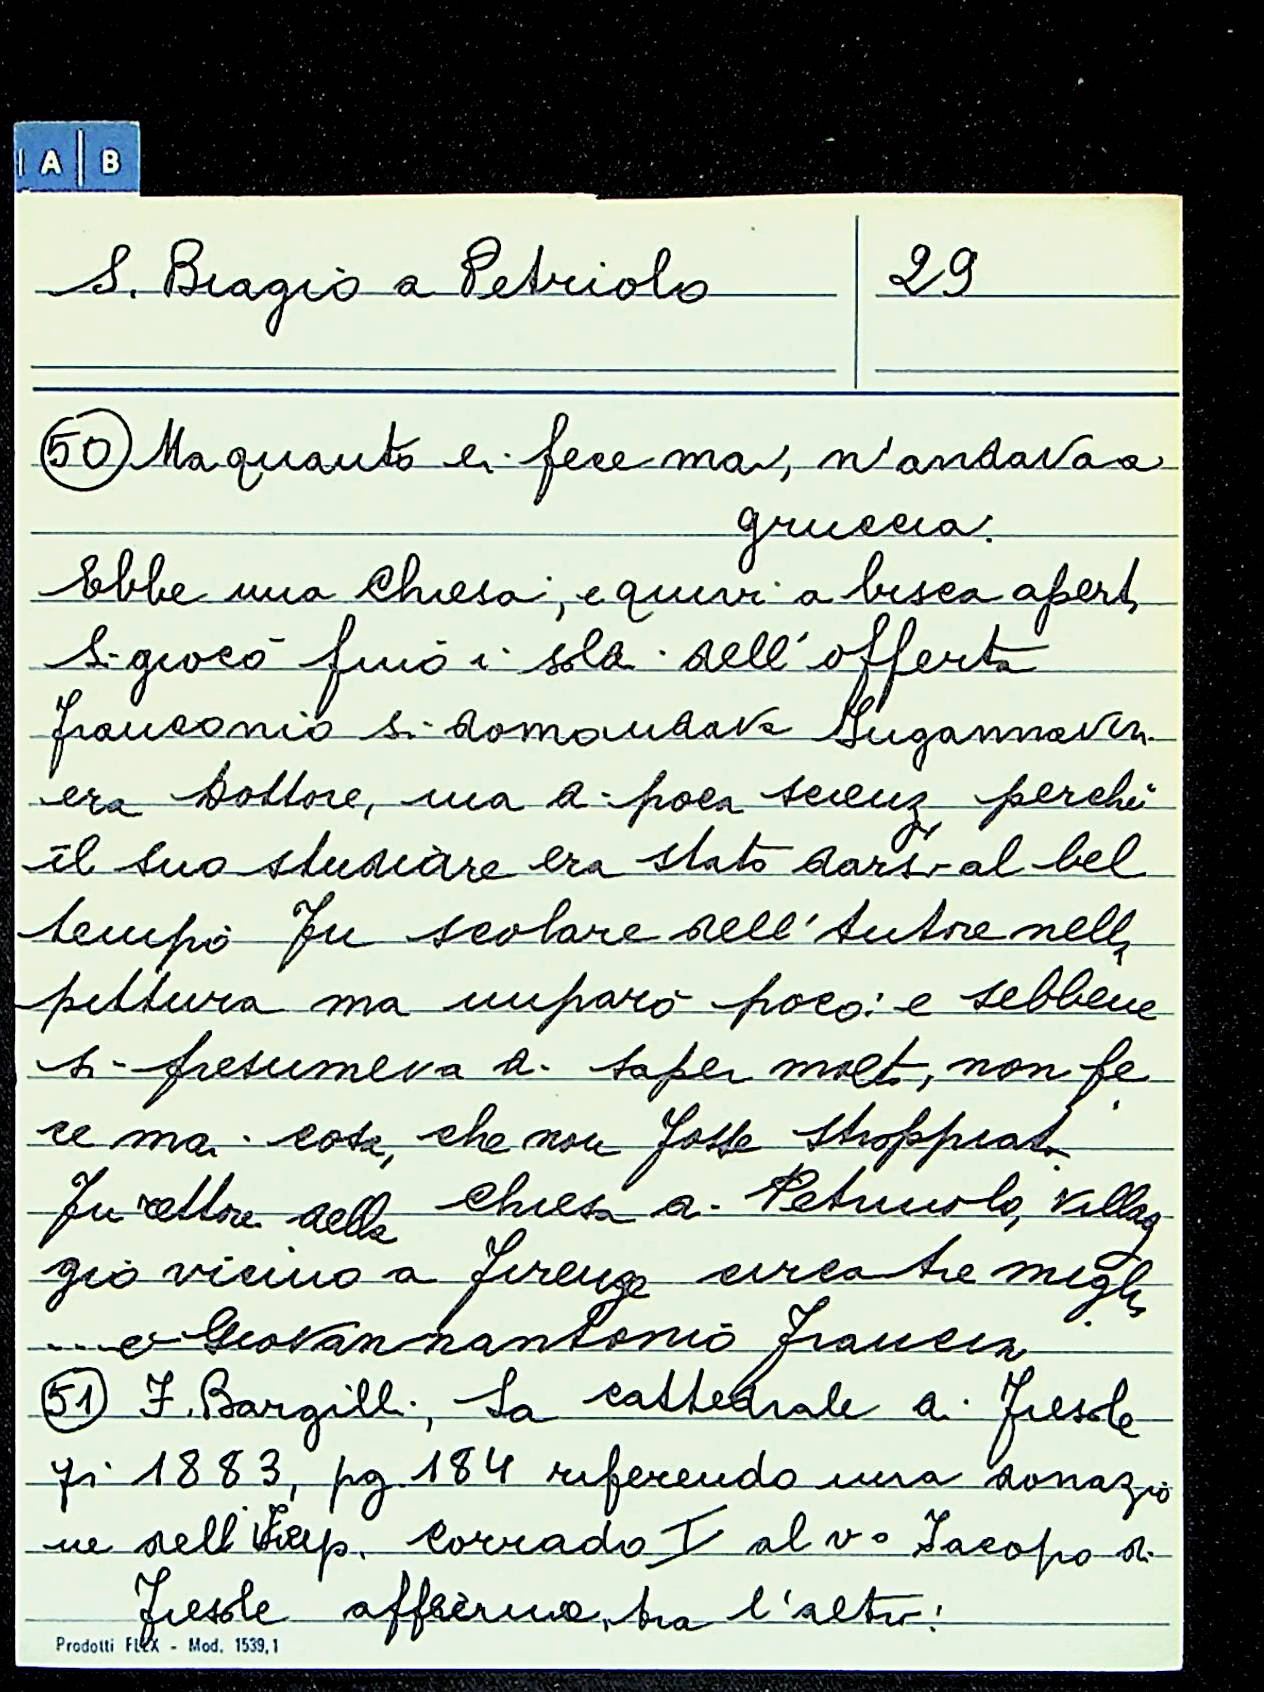 A B
S. Biagio a Petriolo 29
50 Ma quanto ei fece mai, n'andava a
gruccia.
Ebbe una Chiesa, e quivi a bisca aperta
Si giocò fino i soldi dell'offerta
Franconio si domandava Ingannavini
era Dottore, ma di poca scienza perchè
il suo studiare era stato darsi al bel
tempo Fu scolare dell'Autore nella
pittura ma imparò poco: e sebbene
si presumeva di saper molto, non fe
ce mai cosa, che non fosse stroppiata.
Fu rettore della Chiesa di Petriuolo, villag
gio vicino a Firenze circa tre miglia
....e Giovannantonio Francia
51 F. Bargilli, La cattedrale di Fiesole
Fi 1883, pg. 184 riferendo una donazio
ne dell'Imp. Corrado I al vo Jacopo di
Fiesole afferma, tra l'altro:
Prodotti FLEX - Mod. 1539,1